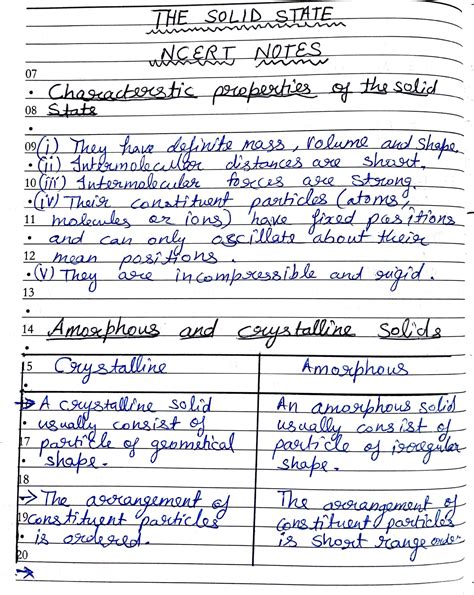 THE SOLID STATE
NCERT NOTES
07
Characterstic properties of the solid
08 State
09 (i) They have definite mass, volume and shape.
(ii) Intermolecular distances are short.
10 (iii) Intermolecular forces are strong.
(iv) Their constituent particles (atoms,
11 molecules or ions) have fixed positions
and can only oscillate about their
12 mean positions.
(v) They are incompressible and rigid.
13
14 Amorphous and crystalline solids
15 Crystalline Amorphous
→ A crystalline solid
usually consist of
17 particle of geometical
shape.
An amorphous solid
usually consist of
particle of irregular
shape.
18
→ The arrangement of
19 constituent particles
is ordered.
The arrangement of
constituent particles
is short range order
20
→